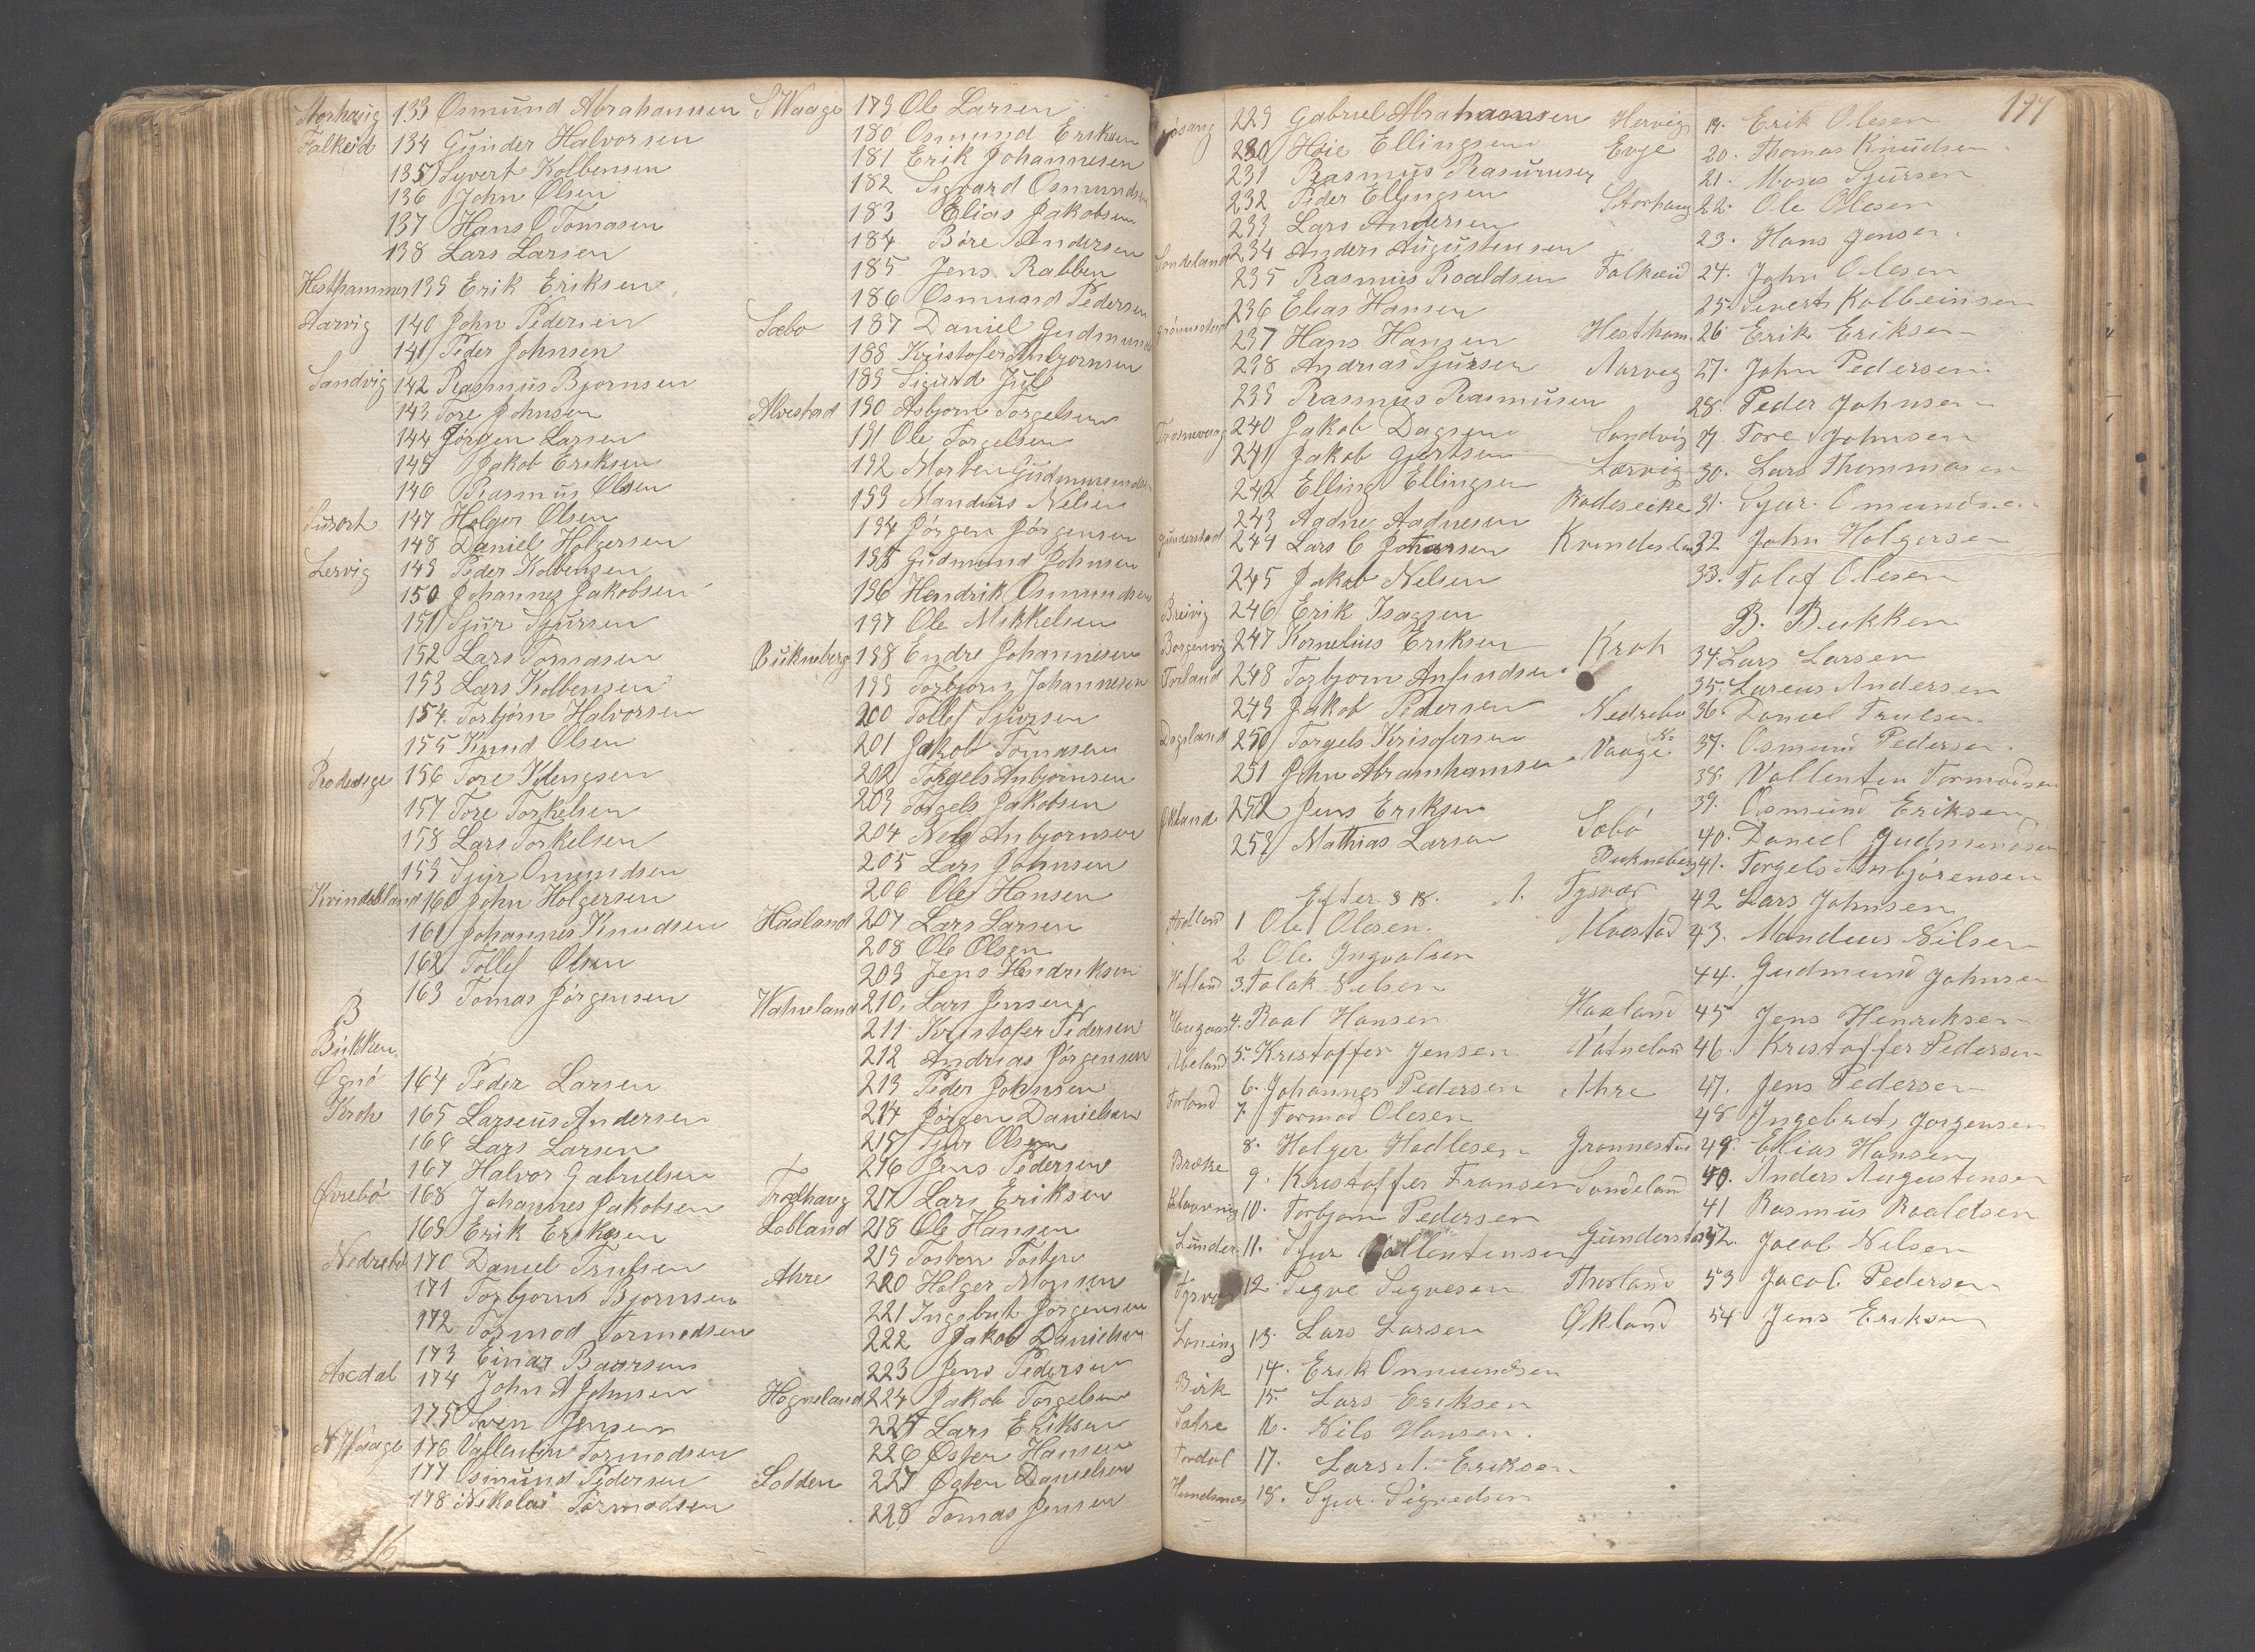 Storhaug 133 Osmund Abrahamsen
Falkeid 134 Gunder Halvorsen
135 Syvert Kolbensen
136 John Olsen
137 Hans O Tomasen
138 Lars Larsen
Hesthammer 139 Erik Eriksen
Aarvig 140 John Pedersen
141 Peder Johnsen
Sandvig 142 Rasmus Bjornsen
143 Tore Johnsen
144 Jørgen Larsen
145 Jakob Eriksen
146 Rasmus Olsen
147 Holger Olsen
148 Daniel Holgersen
Lervig 149 Peder Kolbensen
150 Johannes Jakobsen
151 Sjur Sjursen
152 Lars Tomasen
153 Lars Kolbensen
154 Torbjörn Halvorsen
155 Knud Olsen
156 Tore
157 Tore Torkelsen
158 Lars Torkelsen
159 Sjur Omundsen
Kvindesland 160 John Holgersen
161 Johannes Knudsen
162 Tollef Olsen
163 Tomas Jørgensen
B
Bukken
Ognö 164 Peder Larsen
Kroh 165 Larseus Andersen
166 Lars Larsen
167 Halvor Gabrielsen
Øvrebö 168 Johannes Jakobsen
169 Erik Eriksen
Nedrebö 170 Daniel Trulsen
171 Torbjorn Bjornsen
172 Tormod Tormodsen
173 Einar Baarsen
Aredal 174 John A Johnsen
175 Sven Jensen
N Waage 176 Vallentin Tormodsen
177 Osmund Pedersen
178 Nikolai Tormodsen
16
S Waage 179 Ole Larsen
180 Osmund Eriksen
181 Erik Johannesen
182 Sigvard Osmundsen
183 Elias Jakobsen
184 Böre Andersen
185 Jens Rabben
186 Osmund Pedersen
Sæbo 187 Daniel Gudmund
188 Kristofer Anbjornsen
189 Sigurd Jul
Alvestad 190 Asbjorn Torgelsen
191 Ole Torgelsen
192 Morten Gudmunsen
193 Mandius Nelsen
194 Jørgen Jørgensen
195 Gudmund Johnsen
196 Hendrik Osmundsen
197 Ole Mikkelsen
Bukneberg 198 Endre Johannesen
199 Torbjorn Johannesen
200 Tollef Sjursen
201 Jakob Tomasen
202 Torgels Anbjornsen
203 Torgels Jakobsen
204 Nels Anbjornsen
205 Lars Johnsen
206 Ole Hansen
Haaland 207 Lars Larsen
208 Ole Olsen
209 Jens Hendriksen
Watneland 210 Lars Jensen
211 Kristofer Pedersen
212 Andrias Jørgensen
213 Peder Johnsen
214 Jørgen Danielsen
215 Sjur Olsen
216 Jens Pedersen
Trælhaug 217 Lars Eriksen
Lobland 218 Ole Hansen
219 Tosten Tosten
Ahre 220 Holger Monsen
221 Ingebret Jörgensen
222 Jakob Danielsen
223 Jens Pedersen
Hogneland 224 Jakob Torgelsen
225 Lars Eriksen
226 Østen Hansen
Sodden 227 Østen Danielsen
228 Tomas Jensen
177
229 Gabriel Abrahamsen
230 Höie Ellingsen
231 Rasmus Rasmusen
232 Peder Ellingsen
233 Lars Andersen
Sondeland 234 Anders Augustensen
235 Rasmus Roaldsen
236 Elias Hansen
Grönnestad 237 Hans Hansen
238 Andrias Sjursen
239 Rasmus Rasmusen
240 Jakob Dagsen
241 Jakob Gjertsen
242 Elling Ellingsen
243 Aadne Aadnesen
Gunderstad 244 Lars C Johansen
245 Jakob Nelsen
Breivig 246 Erik Isagsen
Borgenvig 247 Kornelius Eriksen
Torland 248 Torbjorn Anfindsen
249 Jakob Pedersen
Dagsland 250 Torgels Kristofersen
251 John Abramhamsen
Økland 252 Jens Eriksen
253 Mathias Larsen
Efter. § 18. 1. Tysvær
1 Ole Olesen.
2 Ole Ingvalsen
3. Falak Nelsen
4. Roal Hansen
5. Kristoffer Jensen
Forland 6. Johannes Pedersen
7. Tormod Olesen
8. Holger Hadlesen
9. Kristoffer Fransen
10. Torbjorn Pedersen
11. Sjur Vallentensen
Tysvær 12. Segve Segvesen
13. Lars Larsen
14. Erik Onmundsen
Birk 15. Lars Eriksen
Sætre 16. Nils Hansen.
17. Lars A. Eriksen
Hundsnæs 18. Sjur Sigvedsen
Hervig 19. Erik Olesen
Evje 20. Thomas Knudsen
21. Mons Sjursen
Storhaug 22. Ole Olesen
23. Hans Jensen.
Falkeid 24. John Olesen
25. Sivert Kolbeinsen
Hestham. 26. Erik Eriksen
Aarvig 27. John Pedersen
28. Peder Johnsen
Sandvig 29. Tore Johnsen
Lærvig 30. Lars Thommasen
31. Sjur Omundsen
Kvindesland 32 John Holgersen
33. Tolef Olesen
B. Bukken
Kroh 34. Lars Larsen
35. Lareus Andersen
Nedrebo 36. Daniel Trulsen.
N. Vaage 37. Osmund Pedersen.
38. Vallenten Tormodsen
39. Osmund Eriksen
Sæbö 40. Daniel Gudmundsen
Bukneberg 41. Torgels Anbjörensen
42 Lars Johnsen
Alvestad 43. Mandeus Nilsen
44. Gudmund Johnsen
Haaland 45 Jens Henriksen
Vatneland 46. Kristoffer Pedersen
Ahre 47. Jens Pedersen
48 Ingebret Jorgensen
Gronnestad 49. Elias Hansen
Sondeland 40. Anders Augustensen
41 Rasmus Roaldsen
Gunderstad 52. Jacob Nilsen
Thorland 53 Jacob Pedersen
Økland 54 Jens Eriksen